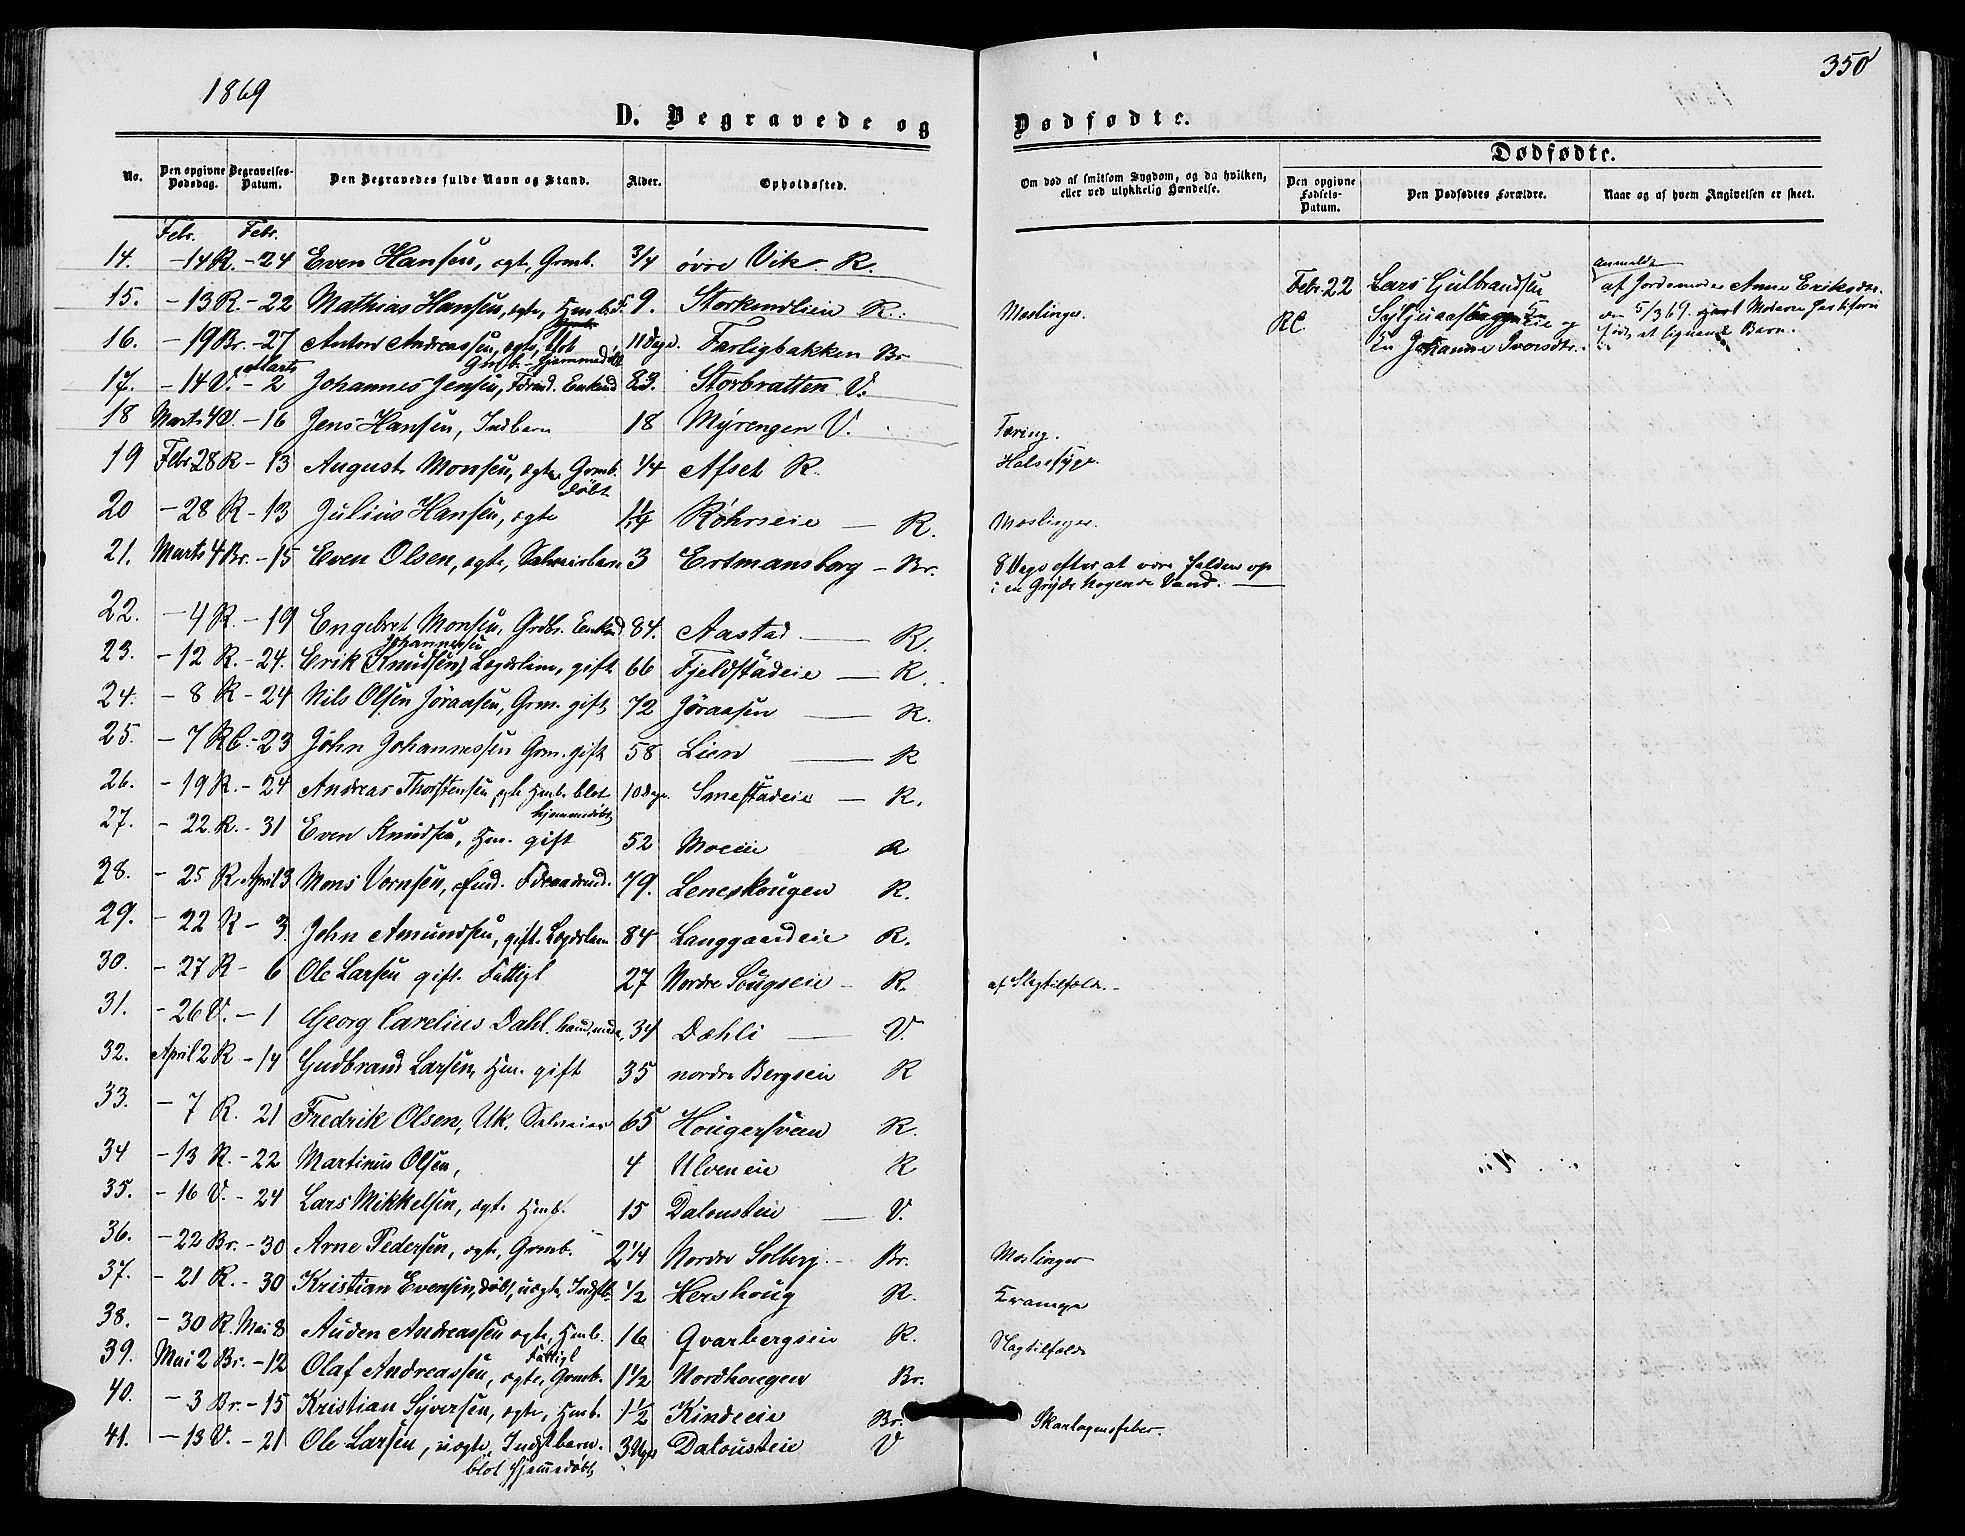 1869
350
D. Begravede og Dødfødte.
No.
Den opgivne Dødsdag.
Begravelses-Datum.
Den Begravedes fulde Navn og Stand.
Alder.
Opholdssted.
Om død af smitsom Sygdom, og da hvilken, eller ved ulykkelig Hændelse.
Dødfødte.
Den opgivne Fødsels-Datum.
Den Dødfødtes Forældre.
Naar og af hvem Angivelsen er skeet.
Febr. Febr.
14. - 14 R. - 24 Even Hansen, ægte, Grmb. 3/4 øvre Vik R.
15. - 13 R. - 22 Mathias Hansen, ægte, Hmb. 9. Storkendlien R. Mæslinger.
16. - 19 Br. - 27 Anton Andreassen, ægte, Grmb. Hjemmedøbt 11 Dage. Farligbakken Br
Marts
17. - 14 V. - 2 Johannes Jensen, Enkmd 83. Storbratten V.
18 Marts 4 V. - 16 Jens Hansen, Indbarn 18 Myrengen V. Tæring.
19 Febr. 28 R - 13 August Monsen, ægte, Grmb. døbt 1/4 Afset R. Halsesyge.
20 - 28 R - 13 Julius Hansen, ægte Røhrseie R. Mæslinger.
21. Marts 4 Br. - 15 Even Olsen, ægte, Selveierbarn 3 Ertmansborg - Br. 8 Dage efter at være falden op
i en Gryde kogende Vand.
22. - 4 R. - 19 Engebret Monsen, Grdbr. Enkmd 84. Aastad R.
Johannessen
23. - 12 R. - 24. Erik (Knudsen) Lægdslem, gift 66 Fjeldstadeie R.
24. - 8 R - 24 Nils Olsen Jøraasen, Grm. gift 72 Jøraasen R.
25. - 7 RC. - 23 John Johannessen Grm. gift 58 Lien R
26. - 19 R. - 24 Andreas Thorstensen, ægte Hmb. blot hjemmedøbt 10 Dage. Smestadeie R.
27. - 22 R. - 31 Even Knudsen, Hm. gift 52 Moeie R
28. - 25 R. April 3 Mons 79. Leneskougen R.
29. - 22 R - 3. John Amundsen, gift. Lægdslem 84 Langgaardeie R.
30. - 27 R - 6 Ole Larsen gift. Fattigl 27 Nordre R. af Slagtilfælde.
31. - 26 V. - 1 Georg Carelius Dahl. 34 Dæhli V.
32. April 2 R - 14 Gudbrand Larsen, Hm. gift 35 nordre Bergseie R
33. - 7 R. 21 Fredrik Olsen, Uk. Selveier 65 Hougersveen R.
34 - 13 R. - 22 Martinus Olsen, 4 Ulveneie R
35. - 16 V. - 24 Lars Mikkelsen, ægte Hmb. 15 Dalousteie V.
36. - 22 Br. - 30 Arne Pedersen, ægte, Grmb. 2 1/4 Nordre Solberg Br. Mæslinger
37. - 21 R. - 30 Kristian Evensen, døbt, uægte, Indstb. 1/2 Hershoug R. Krampe
38. - 30 R. Mai 8 Auden Andreassen ægte, Hmb. Fattigl 16 Qvarbergseie R. Slagtilfælde
39. Mai 2 Br. - 12 Olaf Andreassen, ægte, Grmb. 1 1/2 Nordhougen Br.
40. - 3 Br. - 15 Kristian Syversen, ægte, Hmb. 1 1/2 Kindeeie Br. Skarlagensfeber.
41. - 13 V. - 21 Ole Larsen, uægte, Indstbarn. blot hjemmedøbt 3 Uger Dalousteie V
Febr. 22
RC
Lars Gulbrandsen
og
Johanne Iversdtr.
anmeldt
af Jordemoder Anne Eriksdtr.
den 5/3 69.
Barn.